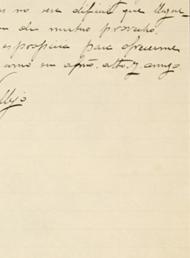 s no sea difícil que llegue-
n de mutuo provecho.
es propicia para ofrecerme
como su afmo. atto. y amigo
llejo